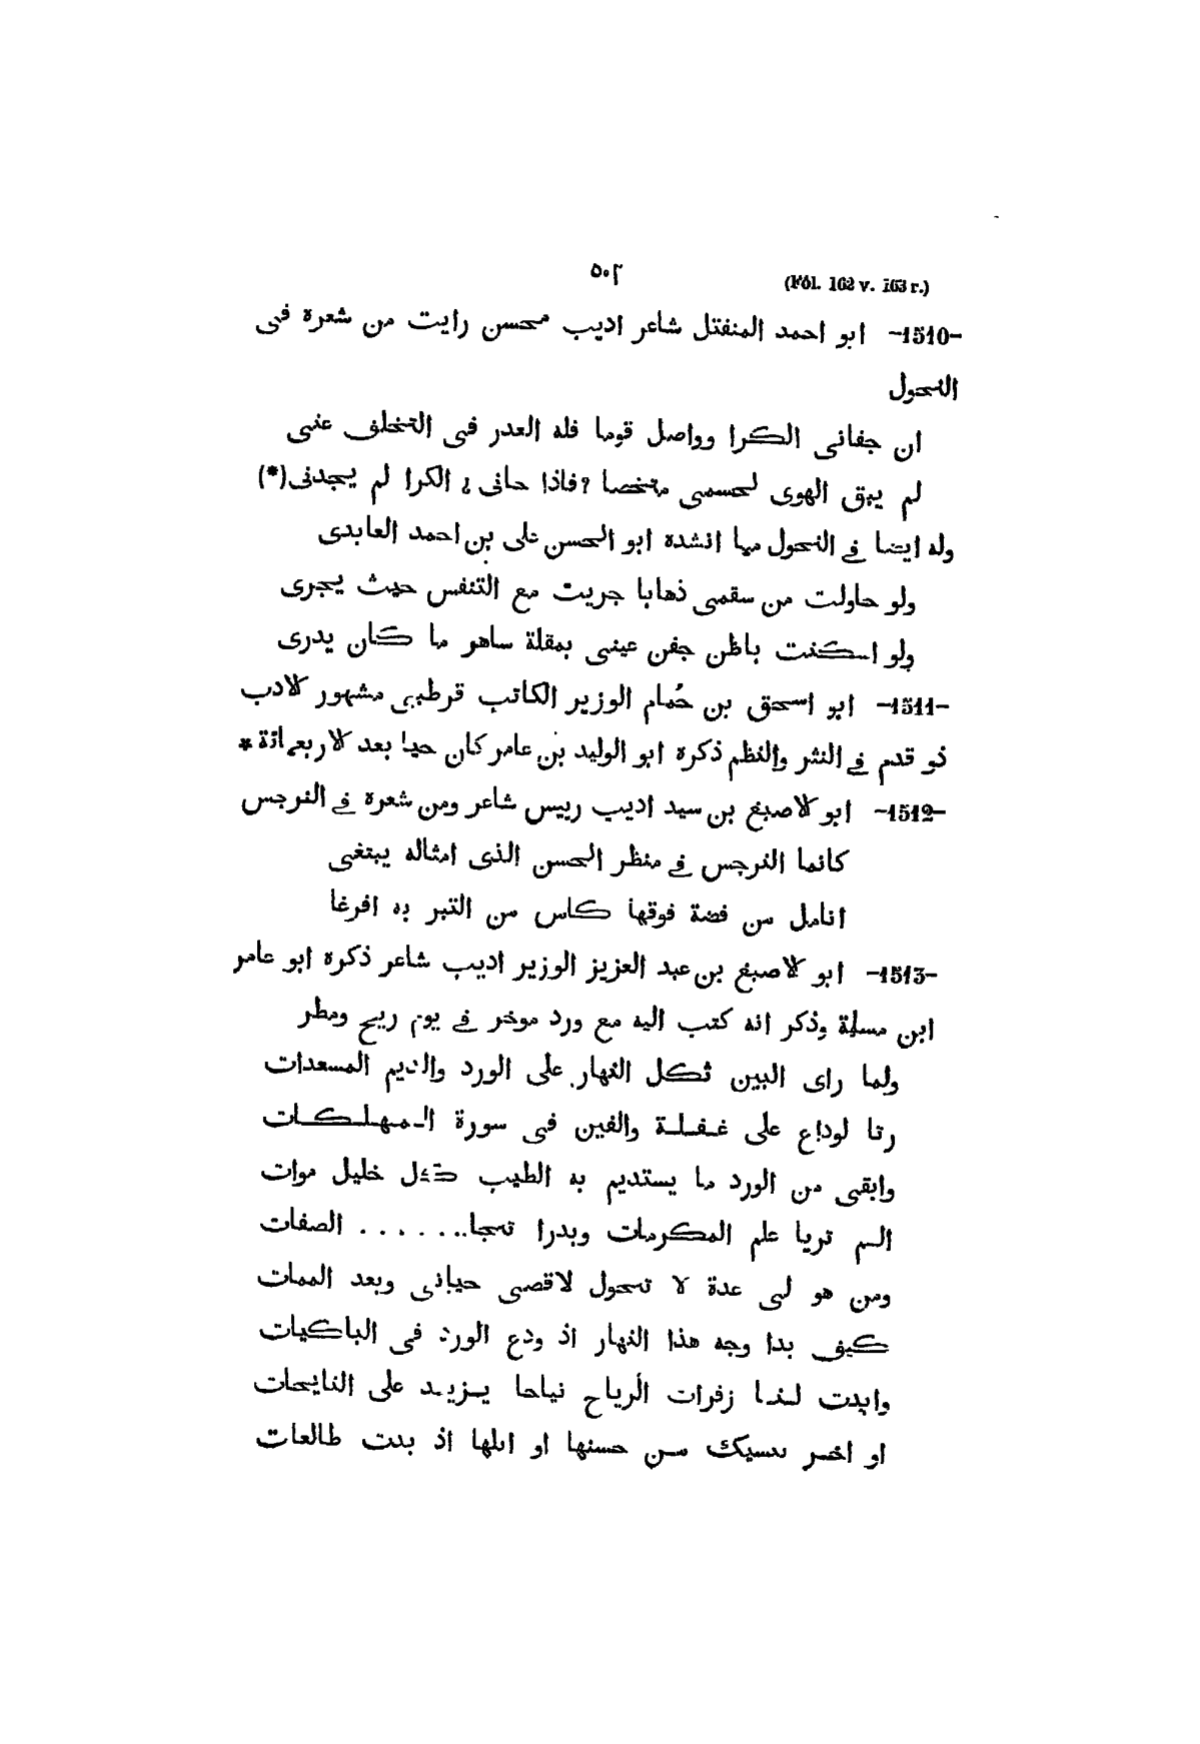 ٥٠٢
(Fól. 162 v. 163 r.)
-1510- ابو احمد المنفتل شاعر اديب محسن رايت من شعرة فى
النحول
ان جفانى الكرا وواصل قوما فله العدر فى التخلف عنى
لم يبق الهوى لجسمى متخصا ?فاذا حانى ? الكرا لم يجدنى(*)
وله ايضا فى النحول مما انشدة ابو الحسن على بن احمد العابدى
ولو حاولت من سقمى ذهابا جريت مع التنفس حيث يجرى
ولو اسكنت باطن جفن عينى بمقلة ساهو ما كان يدرى
-1511- ابو اسحق بن حُمام الوزير الكاتب قرطبى مشهور لادب
ذو قدم فى النثر والنظم ذكرة ابو الوليد بن عامر كان حيا بعد لاربعمائة *
-1512- ابو لاصبغ بن سيد اديب رييس شاعر ومن شعرة فى النرجس
كانما النرجس فى منظر الحسن الذى امثاله يبتغى
انامل من فضة فوقها كاس من التبر به افرغا
-1513- ابو لاصبغ بن عبد العزيز الوزير اديب شاعر ذكرة ابو عامر
ابن مسلمة وذكر انه كتب اليه مع ورد موخر فى يوم ريح ومطر
ولما راى البين ثكل النهار على الورد والديم المسعدات
رتا لوداع على غفلة والفين فى سورة المهلكات
وابقى من الورد ما يستديم به الطيب خليل موات
الم تريا علم المكرمات وبدرا تجا....... الصفات
ومن هو لى عدة لا تحول لاقصى حياتى وبعد الممات
كيف بدا وجه هذا النهار اذ ودع الورد فى الباكيات
وابدت لنا زفرات الرياح نياحا يزيد على النايحات
او اخر من حسنها او اذ بدت طالعات